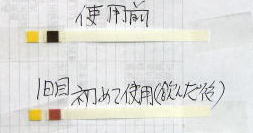 使用前
1日目 初めて使用(飲んだ後)